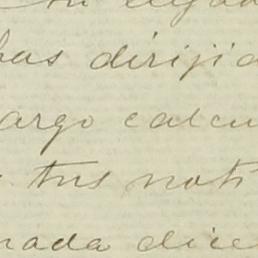 has dirijid
argo calcu
tus noti
nada dice